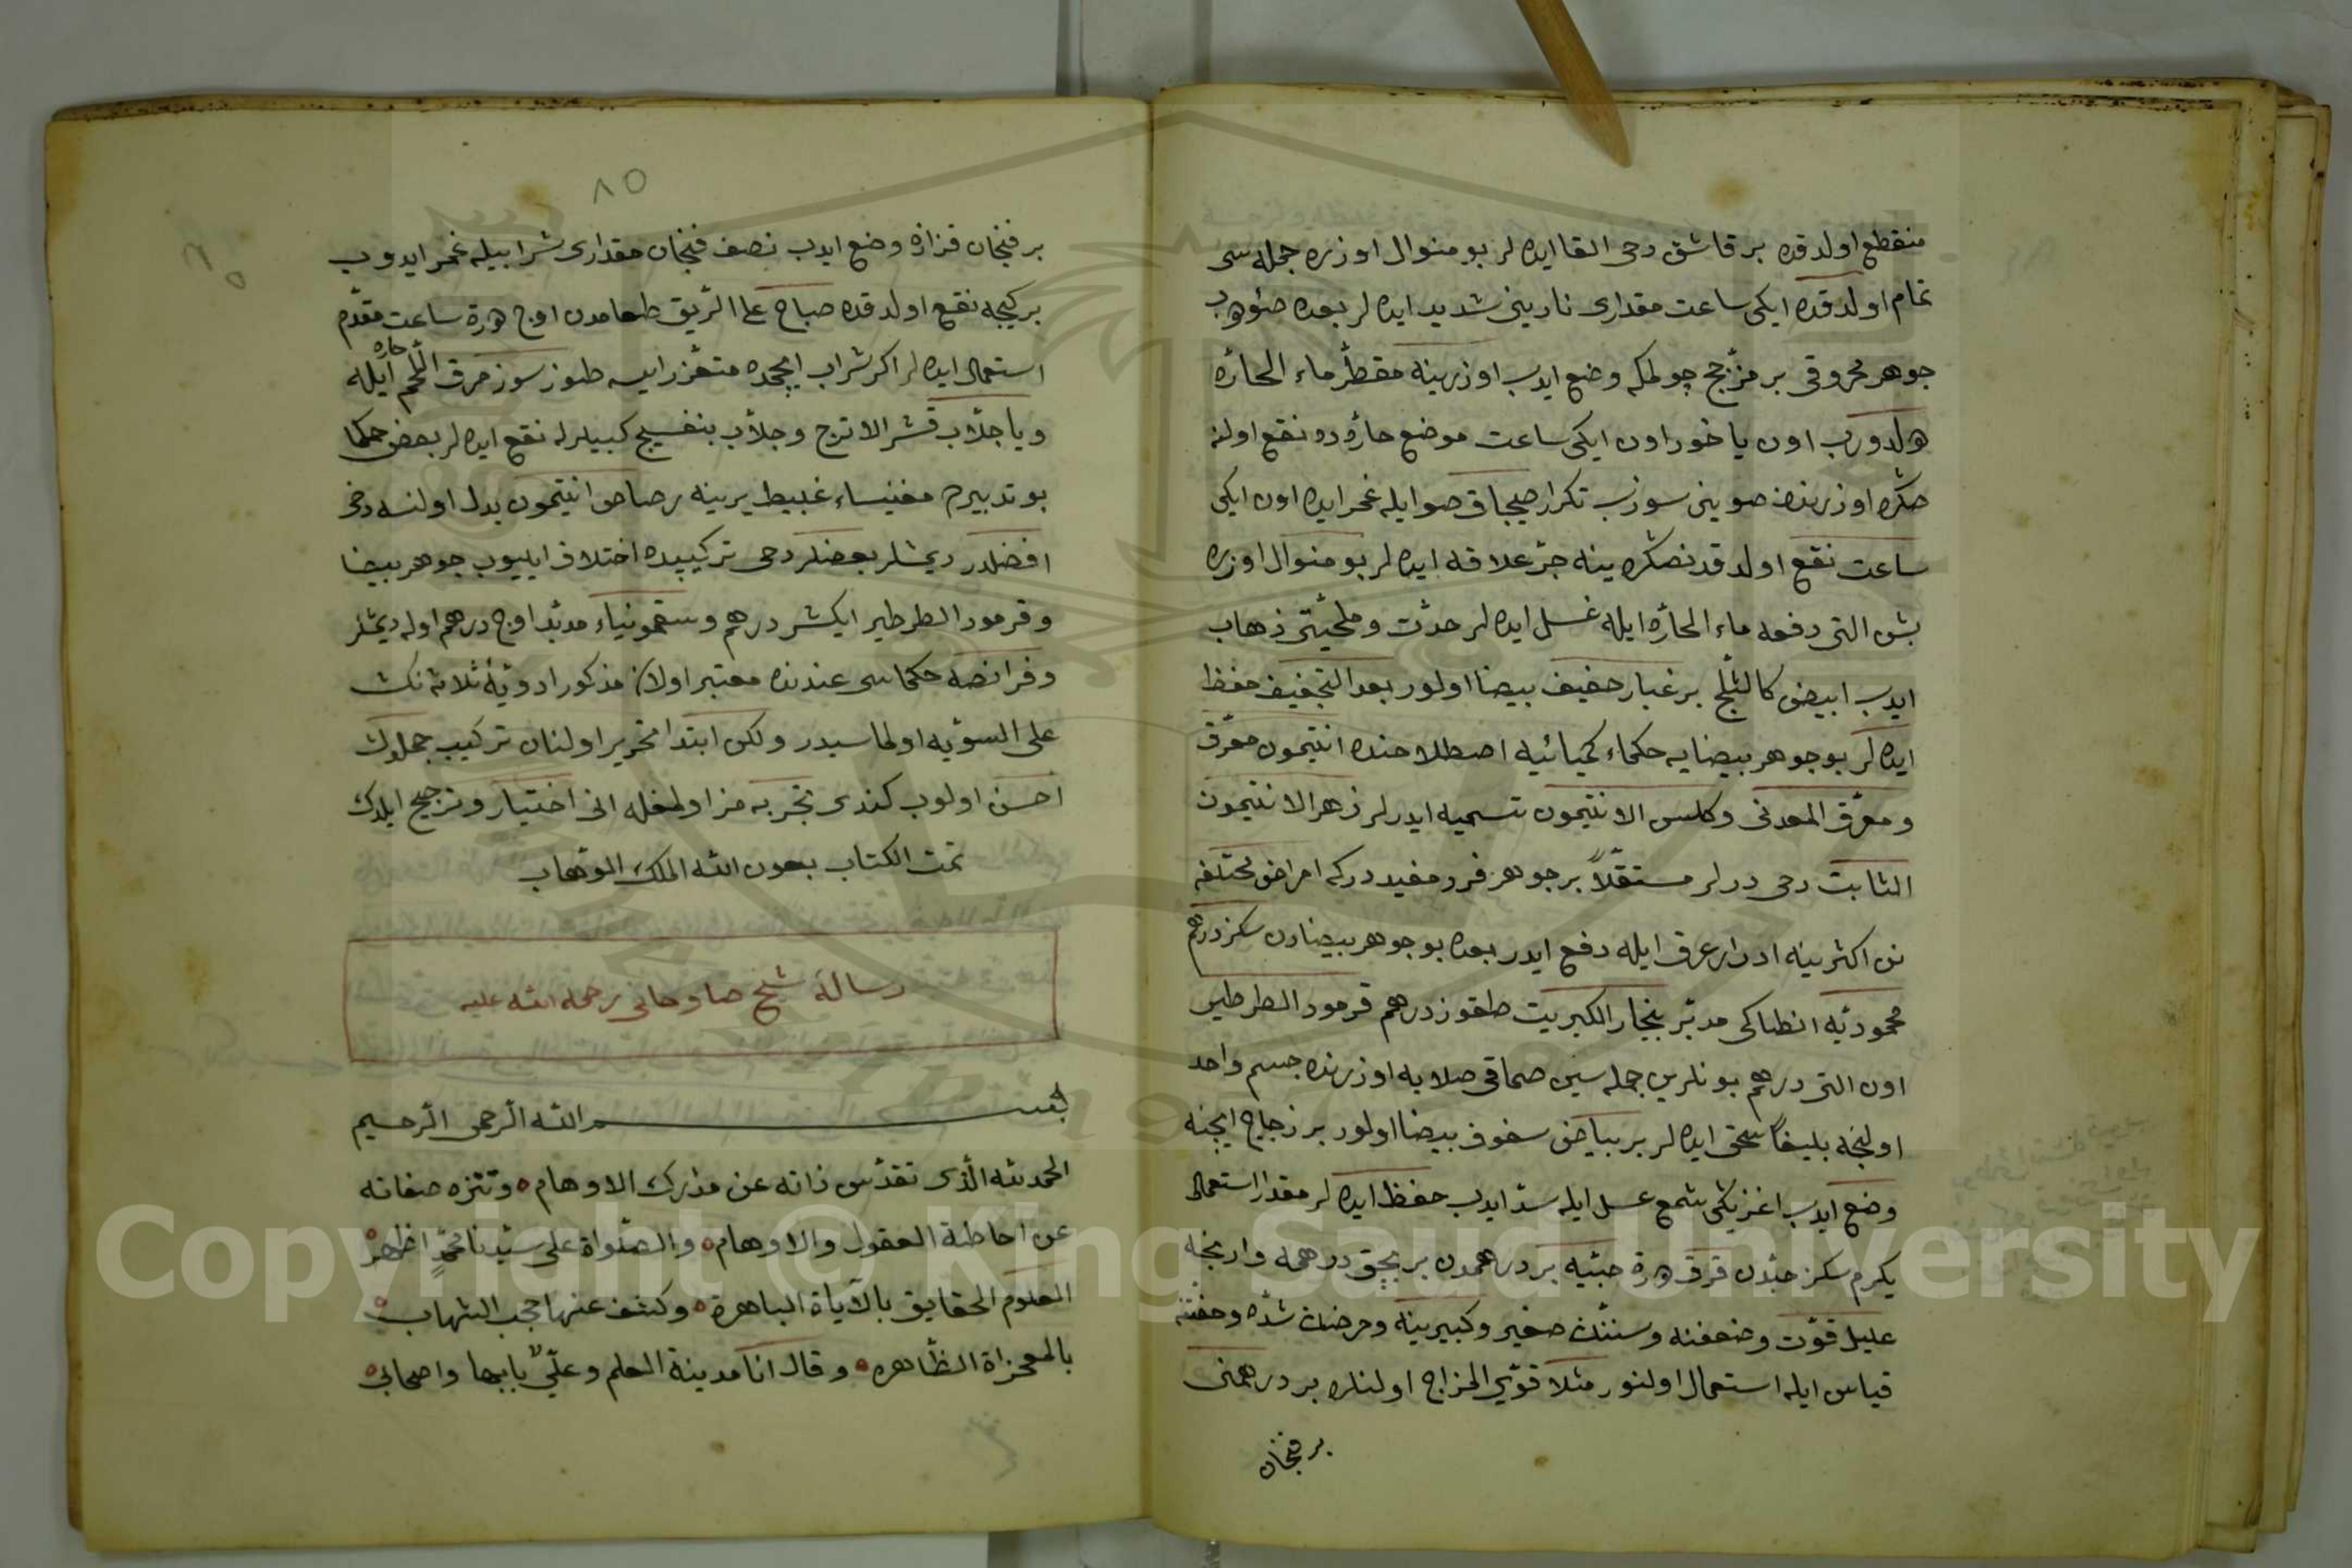 منقطع اولدقده بر قاشق دخی القا ایده لر بو منوال اوزره جمله سی
تمام اولدقده ایکی ساعت مقداری نارینی شدید ایده لر بعده صئوهب
جوهر محروقی بر مزجج چولمکه وضع ایدب اوزرینه مقطر ماء الحاره
هولدورب اون یاخود اون ایکی ساعت موضع حاره ده نقع اولنه
صکره اوزرنده صوینی سوزب تکرار صیجاق صو ایله غمر ایده اون ایکی
ساعت نقع اولدقدنصکره ینه جر علاقه ایده لر بو منوال اوزره
بش التی دفعه ماء الحاره ایله غسل ایده لر حدت و ملحیتی ذهاب
ایدب ابیض کالثلج بر غبار خفیف بیضا اولور بعد التجفیف حفظ
ایده لر بو جوهر بیضایه حکماء کیمیائیه اصطلاحنده انتیمون معرق
و معرق المعدنی و کلس الانتیمون تسمیه ایدرلر زهر الانتیمون
الثابت دخی درلر مستقلاً بر جوهر فرد مفیددر که امراض مختلفه
نن اکثرینه ادرار عرق ایله دفع ایدر بعده بو جوهر بیضادن سکز درهم
محمودیه انطاکی مدبر بنجار الکبریت طقوز درهم قرمور الطرطیر
اون التی درهم بونلرین جمله سین صماقی صلایه اوزرنده جسم واحد
اولنجه بلیغاً سحق ایده لر بر بیاض سفوف بیضا اولور بر زجاج ایچنه
وضع ایدب اغزینی شمع عسل ایله سد ایدب حفظ ایده لر مقدار استعمال
یکرم سکز حبدن قرق درة حبیه بر درهمدن بر بچق درهمه وارنجه
علیل قوت وضعفنه و سننك صغیر و کبیرینه و مرضك شده و خفتنه
قیاس ایله استعمال اولنور مثلا قوی المزاج اولنلره بر درهمنی
بر فنجان
٨٥
بر فنجان قزازه وضع ایدب نصف فنجان مقداری شراب ایله غمر ایدوب
بر کیجه نقع اولدقده صباح علی الریق طعامدن اوج درة ساعت مقدم
استعمال ایده لر اکر شراب ایچمده متعذر ایسه طوزسوز مرق اللحم حاره ایله
ویا جلاب قشر الاترج و جلاب بنفسج کبیلرله نقع ایده لر بعض حکما
بو تدبیرم مغنیساء غبیط یرینه رصاص انتیمون بدل اولنسه دخی
افضلدر دیمشلر بعضلر دخی ترکیبده اختلاف ایلیوب جوهر بیضا
و قرمور الطرطیر ایکشر درهم و سقمونیاء مدبر اوج درهم اوله دیمشلر
و فرانصه حکماسی عندنده معتبر اولان مذکور ادویهٔ ثلاثه نك
علی السویه اولماسیدر ولکن ابتدا تحریر اولنان ترکیب جملەدن
احسن اولوب کندی تجربه مز اولمغله انی اختیار و ترجیح ایلدك
تمت الکتاب بعون الله الملك الوهاب
رسالهٔ شیخ صاوجانی رحمه الله علیه
بسم الله الرحمن الرحیم
الحمد لله الذی تقدس ذاته عن مدرك الاوهام ه وتنزه صفاته
عن احاطة العقول والاوهام ه والصلواة علی سیدنا محمد اظهر
العلوم الحقایق بالآیاة الباهرة ه وکشف عنها حجب الشهاب ه
بالمعجزاة الظاهره ه وقال انا مدینة العلم وعلی بابها واصحابی ه
Copyright © King Saud University